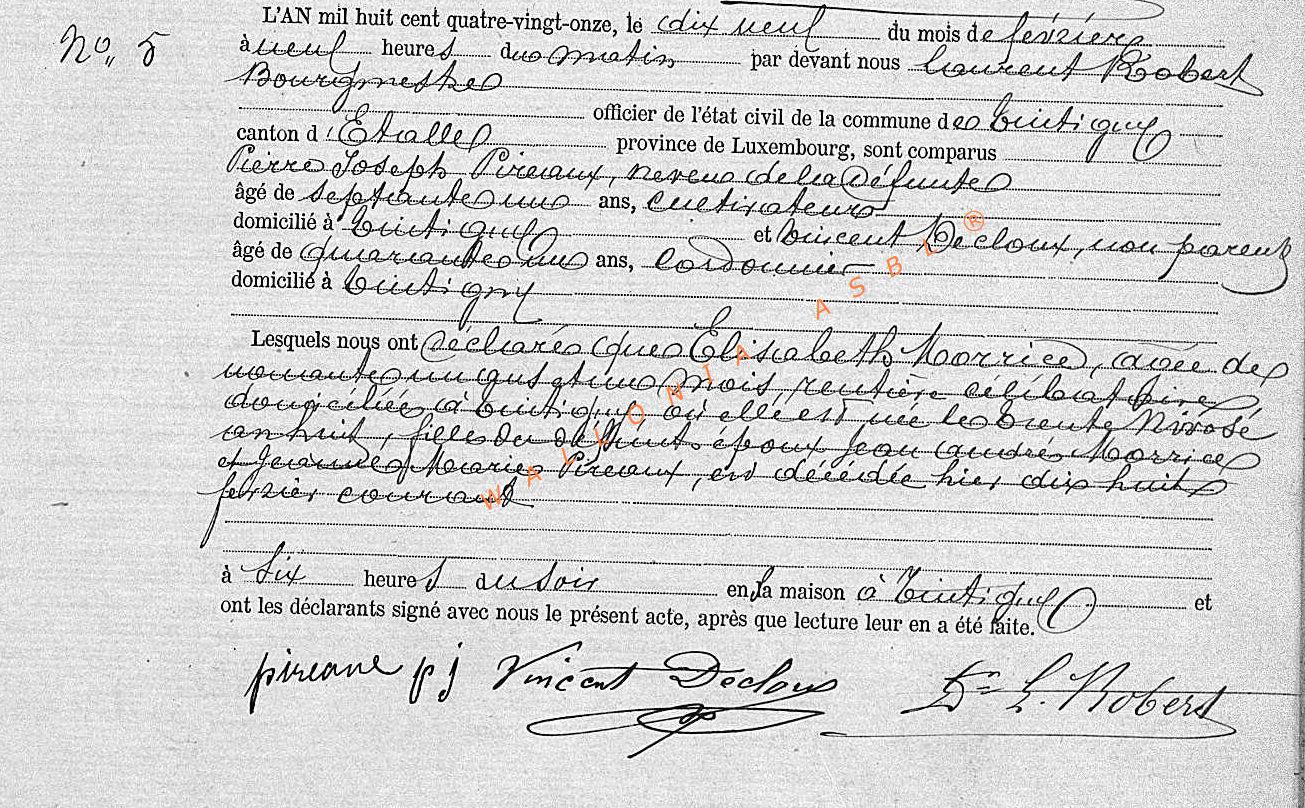 L'AN mil huit cent quatre-vingt-onze, le dix neuf du mois de février
No. 5
à neuf heures du matin par devant nous Laurent Robert
Bourgmestre
officier de l'état civil de la commune de Tintigny
canton d'Etalle province de Luxembourg, sont comparus
Pierre Joseph Pireaux, neveu de la Défunte
âgé de septante un ans, cultivateur
domicilié à Tintigny et Vincent Decloux, non parent
âgé de quarante un ans, Cordonnier
domicilié à Tintigny
Lesquels nous ont déclaré que Elisabeth Morrice, agée de
nonante un ans et un mois, rentière célibataire
domiciliée à Tintigny où elle est née le trente Nivôse
an huit, fille des défunts époux Jean André Morrice
et Jeanne Marie Pireaux, est décédée hier dix huit
février courant
à six heures du soir en sa maison à Tintigny et
ont les déclarants signé avec nous le présent acte, après que lecture leur en a été faite.
pireaux pj Vincent Decloux Dr L. Robert
WALLONIA ASBL ®